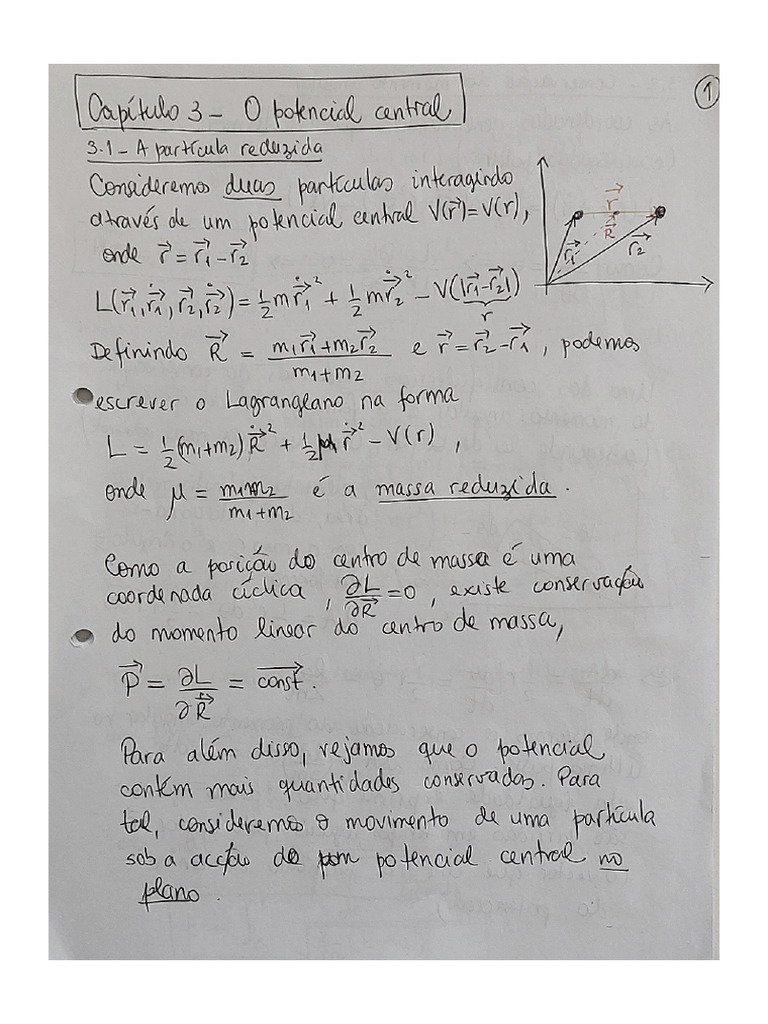 ①
Capítulo 3 - O potencial central
3.1 - A partícula reduzida
Consideremos duas partículas interagindo
através de um potencial central V(r⃗)=V(r),
onde r⃗ = r⃗₁ - r⃗₂
r⃗
R⃗
r⃗₁
r⃗₂
L(r⃗₁, ṙ⃗₁, r⃗₂, ṙ⃗₂) = 1/2 m ṙ⃗₁² + 1/2 m ṙ⃗₂² - V(|r⃗₁-r⃗₂|)
r
Definindo R⃗ = (m₁r⃗₁+m₂r⃗₂)/(m₁+m₂) e r⃗ = r⃗₂ - r⃗₁, podemos
escrever o Lagrangeano na forma
L = 1/2 (m₁+m₂) Ṙ⃗² + 1/2 μ ṙ⃗² - V(r),
onde μ = m₁m₂/(m₁+m₂) é a massa reduzida.
Como a posição do centro de massa é uma
coordenada cíclica, ∂L/∂R⃗ = 0, existe conservação
do momento linear do centro de massa,
P⃗ = ∂L/∂Ṙ⃗ = const.
Para além disso, vejamos que o potencial
contém mais quantidades conservadas. Para
tal, consideremos o movimento de uma partícula
sob a acção de um potencial central no
plano.